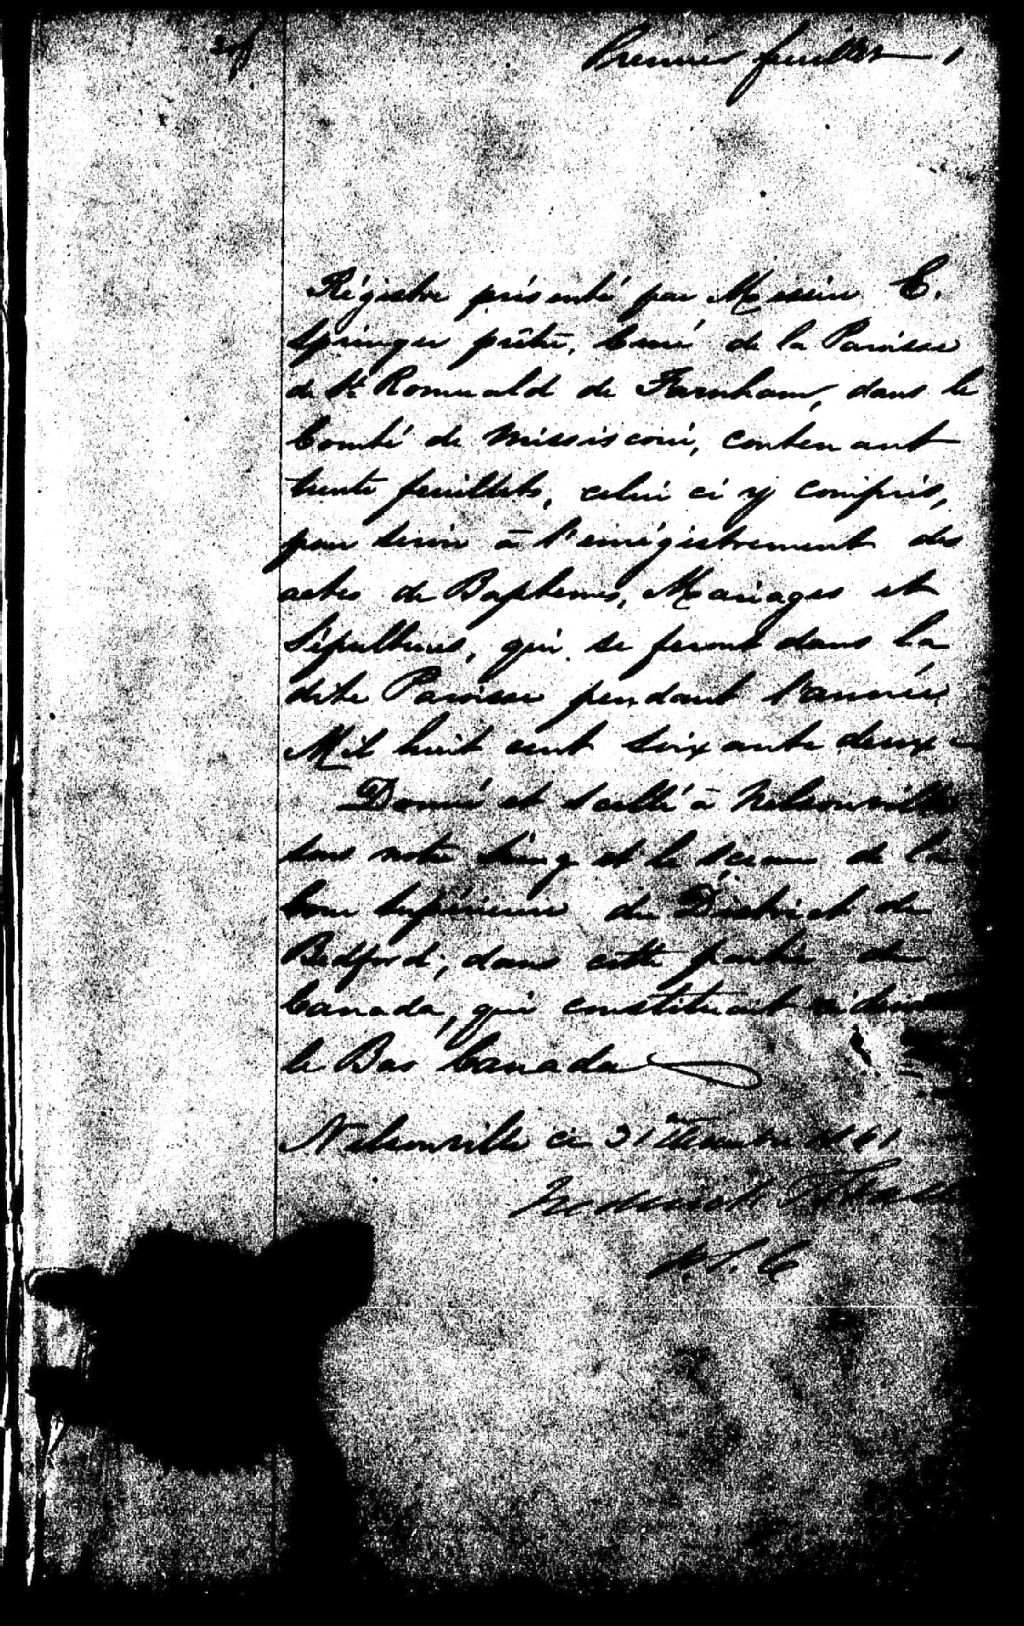 Premier feuillet 1
Régistre présenté par Messire E.
Springer prêtre, Curé de la Paroisse
de St Romuald de Farnham, dans le
Comté de Missiscoui, contenant
trente feuillets, celui ci y compris,
pour servir à l'enrégistrement des
actes de Baptemes, Mariages et
Sépultures, qui se feront dans la
dite Paroisse pendant l'année
Mil huit cent soixante deux
Donné et scellé à Nelsonville
sous notre seing et le sceau de la
Cour Supérieure du District de
Bedford, dans cette partie de
Canada, qui constituait ci devant
le Bas Canada
Nelsonville ce 31 1861
P.S.C